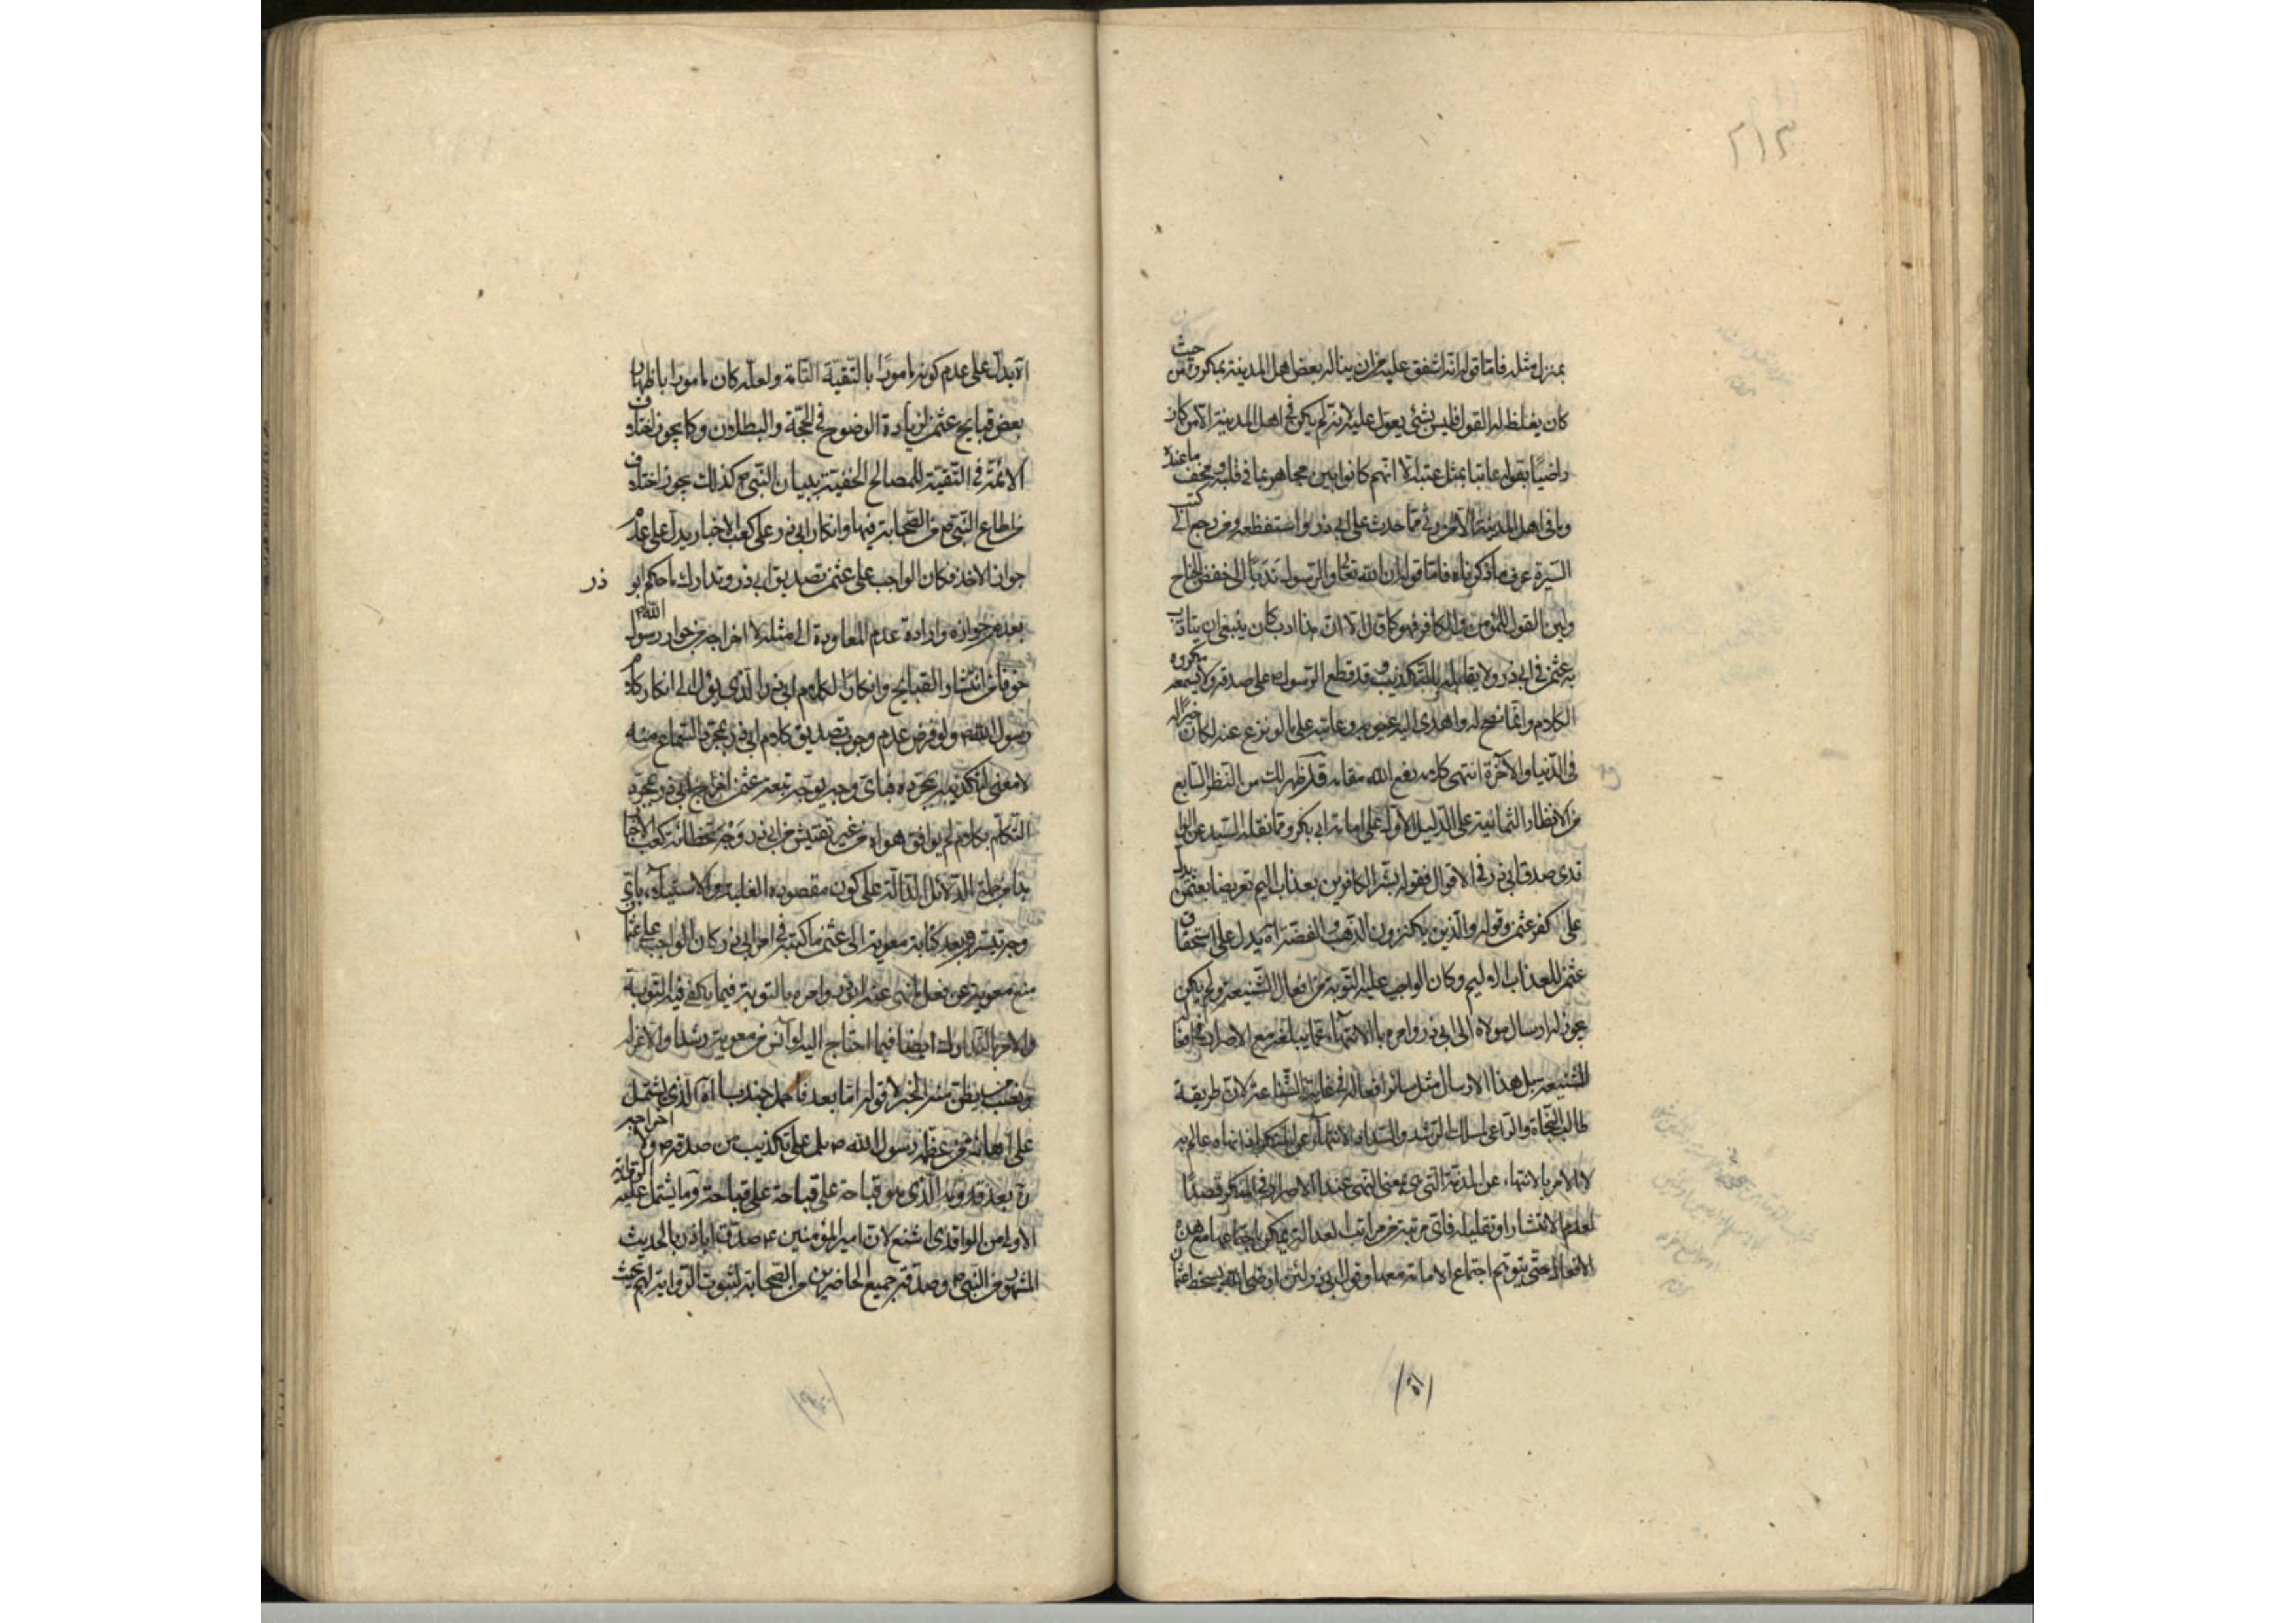 ٢١٣
بمنزل مثله فاما قوله انه اشفق عليه من ان يناله بعض اهل المدينة بمكروه حيث
كان يغلظ له القول فليس بشئ يعول عليه لانه لم يكن في اهل المدينة الا من كان
راضيا بقوله عاتبا بمثل عتبه الا انهم كانوا بين مجاهر بما في قلبه ومخف ما عنده
وما في اهل المدينة الا من رثى مما حدث على ابي ذر واستفظعه ومن رجع الى كتب
السيرة عرف ما ذكرناه فاما قوله ان الله تعالى والرسول ندبا الى خفض الجناح
ولين القول للمؤمن والكافر فهو كما قال الا ان هذا ادب كان ينبغي ان يتادب
به عثمن في ابي ذر ولا يقابله بالتكذيب وقد قطع الرسول على صدقه ولا يسمعه مكروه
الكلام وانما نصح له واهدى اليه عيوبه وعاتبه على ما لو نزع عنه لكان خيرا له
في الدنيا والآخرة انتهى كلامه رفع الله مقامه قد ظهر لك من النظر السابع
من الانظار الثمانية على الدليل الاول على امامة ابي بكر ومما نقله السيد عن
صدق ابي ذر في الاقوال فقوله بشر الكافرين بعذاب اليم تعريضا بعثمن يدل
على كفر عثمن وقوله والذين يكنزون الذهب والفضة اه يدل على استحقاق
عثمن للعذاب الاليم وكان الواجب عليه التوبة من افعاله الشنيعة ولم يكن
يجوز له ارسال مولاه الى ابي ذر وامره بالانتهاء عما يبلغه مع الاصرار في افعاله
الشنيعة بل هذا الارسال مثل سائر افعاله في غاية الشناعة لان طريقة
طالب النجاة والراعي لمسلك الرشد والسداد الانتهاء عن المنكر اذا نهاه عالم به
لا الامر بالانتهاء عن المدة التي هي معنى النهي عند الاصرار في المنكر قصدا
لعدم الانتشار او تقليله فاي مرتبة من مراتب العدالة يمكن اجتماعها مع هذه
الافعال حتى يتوهم اجتماع الامامة معها وقول ابي ذر لئن ارضى الله بسخط عثمان
الا يدل على عدم كونه مامورا بالتقية التامة ولعله كان مامورا باظهار
بعض قبايح عثمن لزيادة الوضوح في الحجة والبطلان وكما يجوز اختلاف
الائمة في التقية للمصالح الخفية ببيان النبي ص كذلك يجوز اختلاف
من اطاع النبي ص من الصحابة فيها وانكار ابي ذر على كعب الاحبار يدل على عدم
جواز الاخذ فكان الواجب على عثمن تصديق ابي ذر وتدارك ما حكم ابو ذر
بعدم جوازه وارادة عدم المعاودة الى مثله لا اخراجه من جوار رسول الله ص
خوفا من انتشار القبايح وانكارا لكلام ابي ذر الذي يؤل الى انكار كلام
رسول الله ص ولو فرض عدم وجوب تصديق كلام ابي ذر بمجرد السماع منه
لا معنى لتكذيبه بمجرده فباي وجه يوجه تبعة عثمن اخراج ابي ذر بمجرد
التكلم بكلام لم يوافق هواه من غير تفتيش من ابي ذر وجه تخطئة كعب الاحبار
هذا من جملة الدلائل الدالة على كون مقصوده الغلبة والاستيلاء باي
وجه تيسر وبعد كتابة معوية الى عثمن ما كتبه في امر ابي ذر كان الواجب على عثمان
منع معوية عن فعل انهى عنه ابو ذر وامره بالتوبة فيما يكفي فيه التوبة
والامر بالتدارك ايضا فيما احتاج اليه لو آنس من معوية رشدا والا عزله
ونصب من يظن منه الخير لا قوله اما بعد فاحمل جندبا اه الذي يشتمل
على اهانة من عظمه رسول الله ص بل على تكذيب من صدقه ص ولا اخراجه
بعد قدومه الذي هو قباحة على قباحة على قباحة وما يشتمل عليه الرواية
الاولى من الواقدي اشنع لان امير المؤمنين ع صدق اباذر بالحديث
المشهور من النبي ص وصدقه جميع الحاضرين من الصحابة لثبوت الرواية لهم بحيث